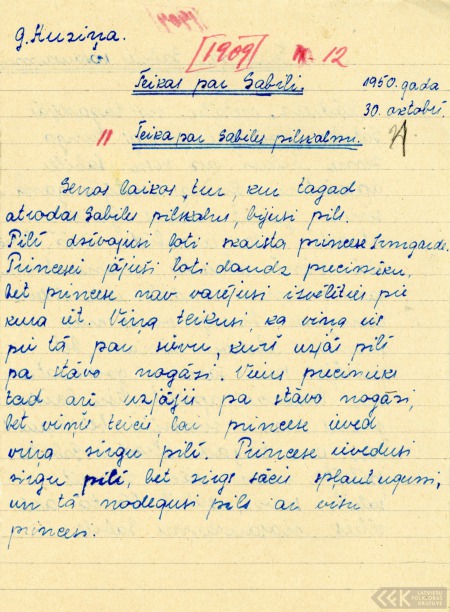 G. Kuziņa.
[1909] 12
Teikas par Sabili. 1950. gada
30. oktobrī.
11 Teika par Sabiles pilskalnu.
Senos laikos, tur, kur tagad
atrodas Sabiles pilskalns, bijusi pils.
Pilī dzīvojusi ļoti skaista princese Irmgarde.
Princesei jājuši ļoti daudz precinieku,
bet princese nav varējusi izvēlēties pie
kura iet. Viņa teikusi, ka viņa ies
pie tā par sievu, kurš uzjās pilī
pa stāvo nogāzi. Viens precinieks
tad arī uzjājis pa stāvo nogāzi,
bet viņš teicis lai princese ieved
viņa zirgu pilī. Princese ievedusi
zirgu pilī, bet zirgs sācis spļaut uguni,
un tā nodegusi pils ar visu
princesi.
LATVIEŠU
FOLKLORAS
KRĀTUVE